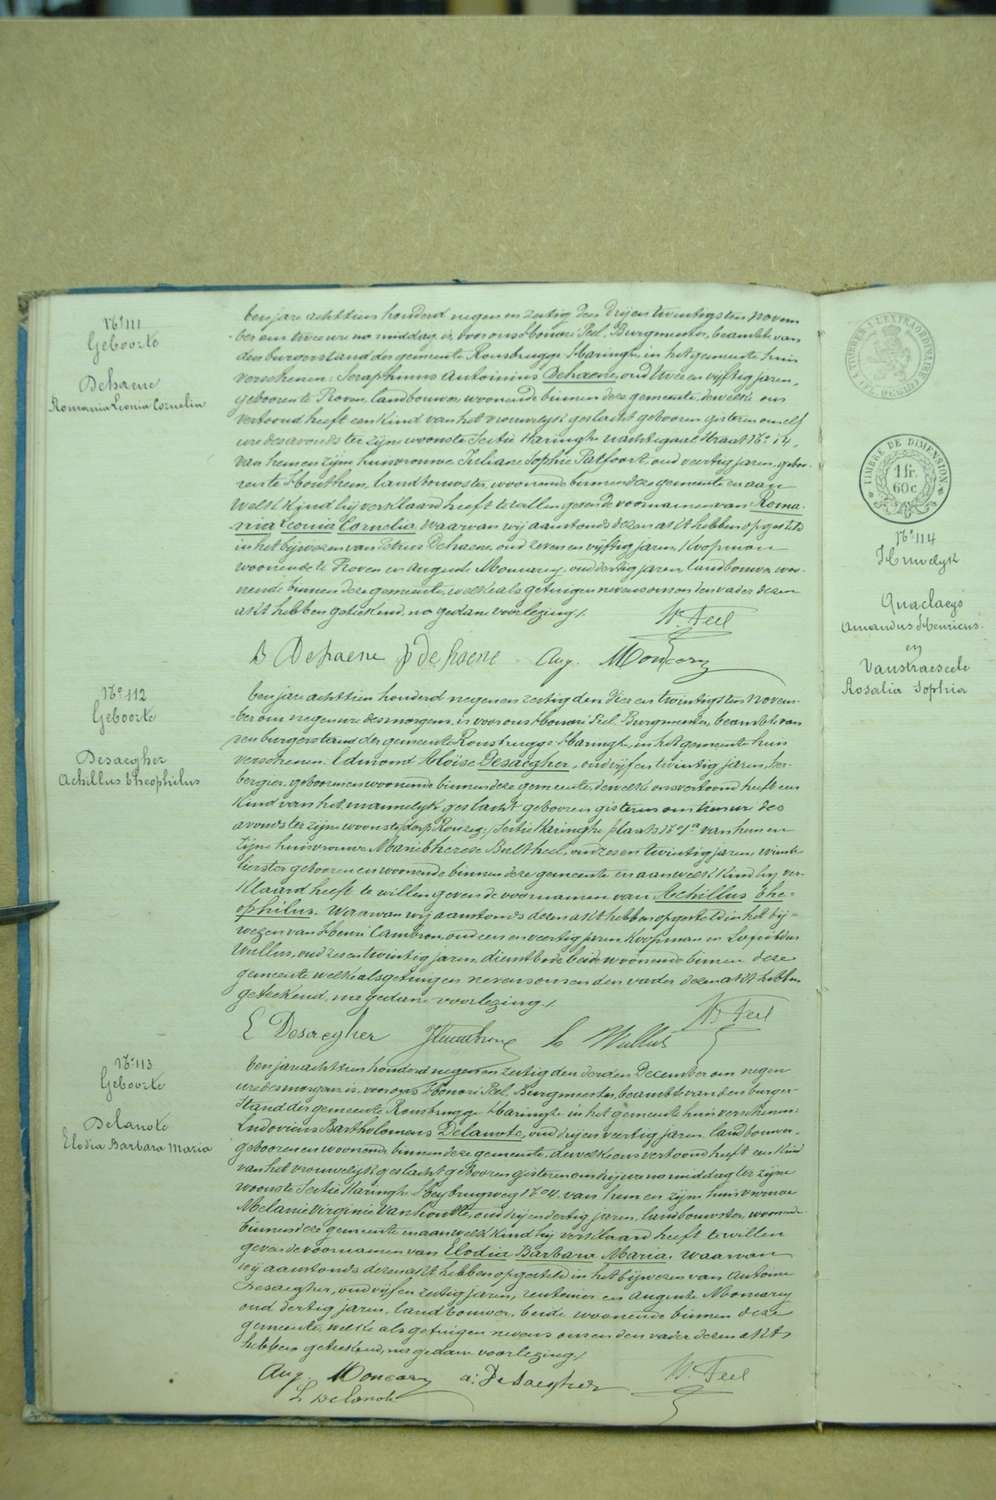 N° 111
Geboorte
Dehaene
Romania Leonia Cornelia
ben jare achttien honderd negen en zestig den drij en twintigsten novem
ber om twee ure na middag, is voor ons Honoré Peel, Burgmeester, beambte van
den burgerstand der gemeente Rousbrugge-Haringhe, in het gemeente huis
verschenen: Seraphinus Antoinius Dehaene, oud twee en vijftig jaren,
geboren te Proven, landbouwer, woonende binnen deze gemeente, dewelke ons
vertoond heeft een kind van het vrouwelyk geslacht geboren gisteren om elf
ure des avonds ter zijne woonste Sectie Haringhe nachtegaal straat N° 14,
van hem en zijne huisvrouwe Juliane Sophie Patfoort, oud veertig jaren, gebo-
ren te Houthem, landbouwster, woonende binnen deze gemeente en aan
welk kind hij verklaard heeft te willen geven de voornamen van Roma-
nia Leonia Cornelia. Waarvan wij aanstonds dezen akt hebben opgesteld
in het bijwezen van Petrus Dehaene, oud zeven en vijftig jaren, Koopman
woonende te Proven en Auguste Moncarey, oud dertig jaren landbouwer woo-
nende binnen deze gemeente, welke als getuigen nevens ons en den vader dezen
akt hebben geteekend, na gedane voorlezing /.
H. Peel
S Dehaene P Dehaene Aug. Moncarey
N° 112
Geboorte
Desaegher
Achillus Theophilus
ben jare achttien honderd negen en zestig den vier en twintigsten novem-
ber om negen ure des morgens, is voor ons Honoré Peel, Burgmeester, beambte van
den burgerstand der gemeente Rousbrugge-Haringhe, in het gemeente huis
verschenen: Edmond Aloïse Desaegher, oud vijf en twintig jaren, her-
bergier, geboren en woonende binnen deze gemeente, dewelke ons vertoond heeft een
kind van het mannelyk geslacht geboren gisteren om tien ure des
avonds ter zijne woonste dorp Rousbg., Sectie Haringhe plaats N° 7a van hem en
zijne huisvrouwe Marie Therese Bultheel, oud zes en twintig jaren, winke-
lierster, geboren en woonende binnen deze gemeente en aan welk kind hij ver-
klaard heeft te willen geven de voornamen van Achillus The-
ophilus. Waarvan wij aanstonds dezen akt hebben opgesteld in het bij-
wezen van Henri Cambron, oud een en veertig jaren Koopman en Leopoldus
Wullus, oud zes en twintig jaren, dienstbode beide woonende binnen deze
gemeente welke als getuigen nevens ons en den vader dezen akt hebben
geteekend, na gedane voorlezing /.
H. Peel
E Desaegher HCambron L Wullus
N° 113
Geboorte
Delanote
Elodia Barbara Maria
ben jare achttien honderd negen en zestig den derden December om negen
ure des morgens, is voor ons Honoré Peel, Burgmeester, beambte van den burger-
stand der gemeente Rousbrugge-Haringhe in het gemeente huis verschenen:
Ludovicus Bartholomeus Delanote, oud drij en veertig jaren, landbouwer,
geboren en woonende binnen deze gemeente, dewelke ons vertoond heeft een kind
van het vrouwelyk geslacht geboren gisteren om drij ure na middag ter zijne
woonste Sectie Haringhe Heybrugweg N° 04, van hem en zijne huisvrouw
Melanie Virginie Vanhoutte, oud drij en dertig jaren, landbouwster, woonende
binnen deze gemeente en aan welk kind hij verklaard heeft te willen
geven de voornamen van Elodia Barbara Maria, waarvan
wij aanstonds dezen akt hebben opgesteld in het bijwezen van Antoine
Desaegher, oud vijf en zestig jaren, rentenier en Auguste Moncarey
oud dertig jaren, landbouwer, beide woonende binnen deze
gemeente, welke als getuigen nevens ons en den vader dezen akt
hebben geteekend, na gedane voorlezing /.
Aug. Moncarey a: Desaegher H. Peel
L Delanote
TIMBRE DE DIMENSION
1 fr.
60 c
N° 114
Huwelyk
Quaclaeys
Amandus Henricus
en
Vanstraeseele
Rosalia Sophia